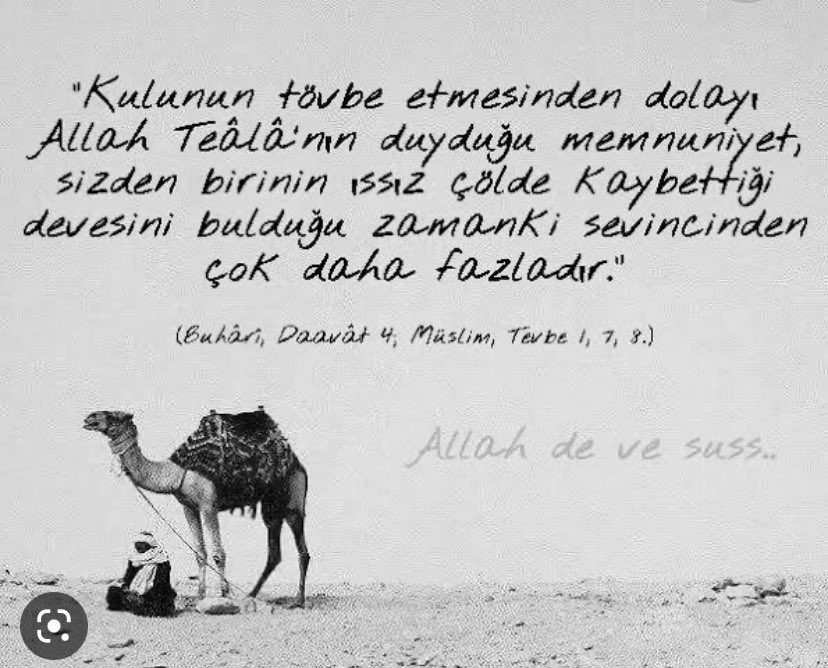 "Kulunun tövbe etmesinden dolayı
Allah Teâlâ'nın duyduğu memnuniyet,
sizden birinin ıssız çölde kaybettiği
devesini bulduğu zamanki sevincinden
çok daha fazladır."
(Buhârî, Daavât 4; Müslim, Tevbe 1, 7, 8.)
Allah de ve suss..